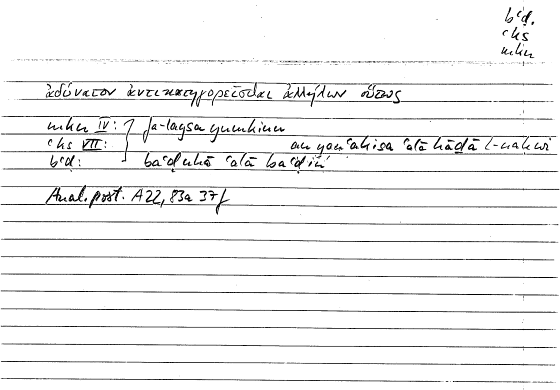 bʿḍ.
ʿks
mkn
ἀδύνατον ἀντικατηγορεῖσθαι ἀλλήλων οὕτως
mkn IV: fa-laysa yumkinu
ʿks VII: an yanʿakisa ʿalā hāḏā l-naḥwi
bʿḍ: baʿḍuhā ʿalā baʿḍin
Anal. post. A22, 83a 37f